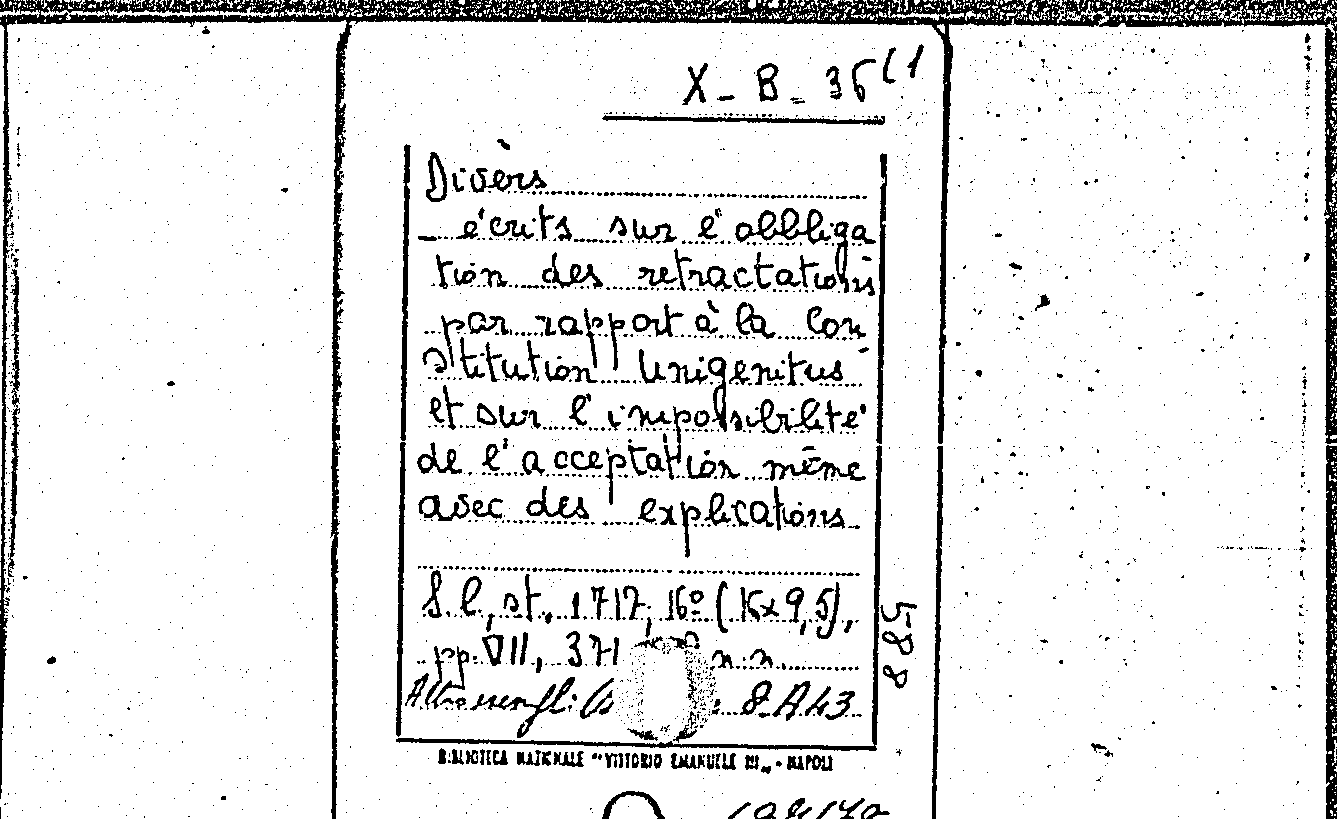 X - B - 36 (1
Divèrs
- écrits sur l'obbliga
tion des retractations
par rapport à la Con
stitution Unigenitus
et sur l'impossibilité
de l'acceptation même
avec des explications
S. l., st., 1717, 16º (16x9,5),
pp. VII, 371 n. n.
8. A 43
588
BIBLIOTECA NAZIONALE "VITTORIO EMANUELE III" - NAPOLI